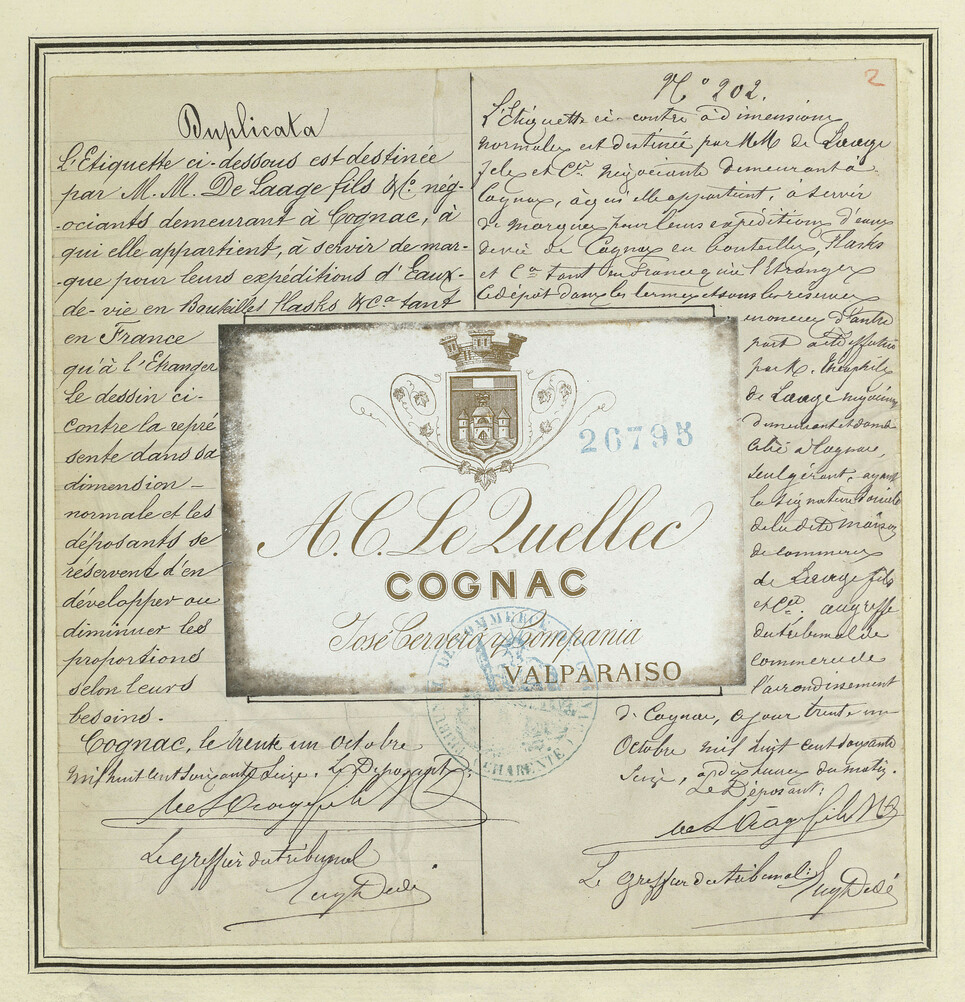 2
Duplicata
L'Etiquette ci-dessous est destinée
par M.M. De Laage fils & Co. nég-
-ociants demeurant à Cognac, à
qui elle appartient, à servir de mar-
-que pour leurs expéditions d'Eaux-
de-vie en Bouteilles flasks & Ca tant
en France
qu'à l'Etranger
Le dessin ci-
contre la repré
sente dans sa
dimension –
normale et les
déposants se
réservent d'en
développer ou
diminuer les
proportions
selon leurs
besoins.
Cognac, le trente un Octobre
mil huit cent soixante Seize. Le Déposant:
De Laage fils & Co
Le greffier du tribunal
No 202.
L'Etiquette ci-contre à dimensions
normales est destinée par MM de Laage
fils et Cie négociants demeurant à
Cognac, à qui elle appartient, à servir
de marque pour leurs expéditions d'eaux
de vie de Cognac en bouteilles, flasks
et Ca tant en France qu'à l'Etranger
Le dépôt dans les termes et sous les réserves
énoncées d'autre
part a été effectué
par M. Théophile
de Laage négociant
demeurant et domi
cilié à Cognac,
seul gérant, ayant
la signature sociale
de la dite maison
de commerce
de Laage fils
et Cie. au greffe
du tribunal de
commerce de
l'arrondissement
de Cognac, ce jour trente un
Octobre mil huit cent soixante
Seize, à dix heures du matin.
Le Déposant:
De Laage fils & Co
Le greffier du tribunal:
26795
A. C. Le Quellec
COGNAC
José Cervero y Compania
VALPARAISO
TRIBUNAL DE COMMERCE
CHARENTE